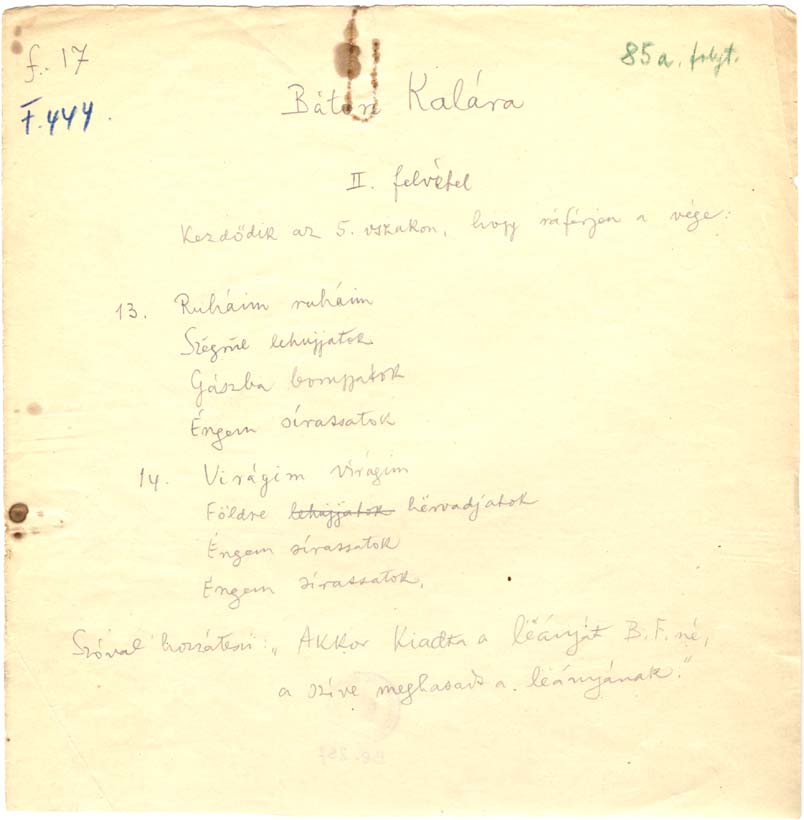 f. 17
85a. folyt.
F.444.
Bátori Kalára
II. felvétel
Kezdődik az 5. vszakon, hogy ráférjen a vége:
13. Ruháim ruháim
Szégrűl lehujjatok
Gászba borujjatok
Éngem sírassatok
14. Virágim virágim
Földre lehujjatok hërvadjatok
Éngem sírassatok
Éngem sírassatok.
Szóval hozzáteszi: „Akkor kiadta a lëányát B.F.né,
a szíve meghasadt a lëányának."